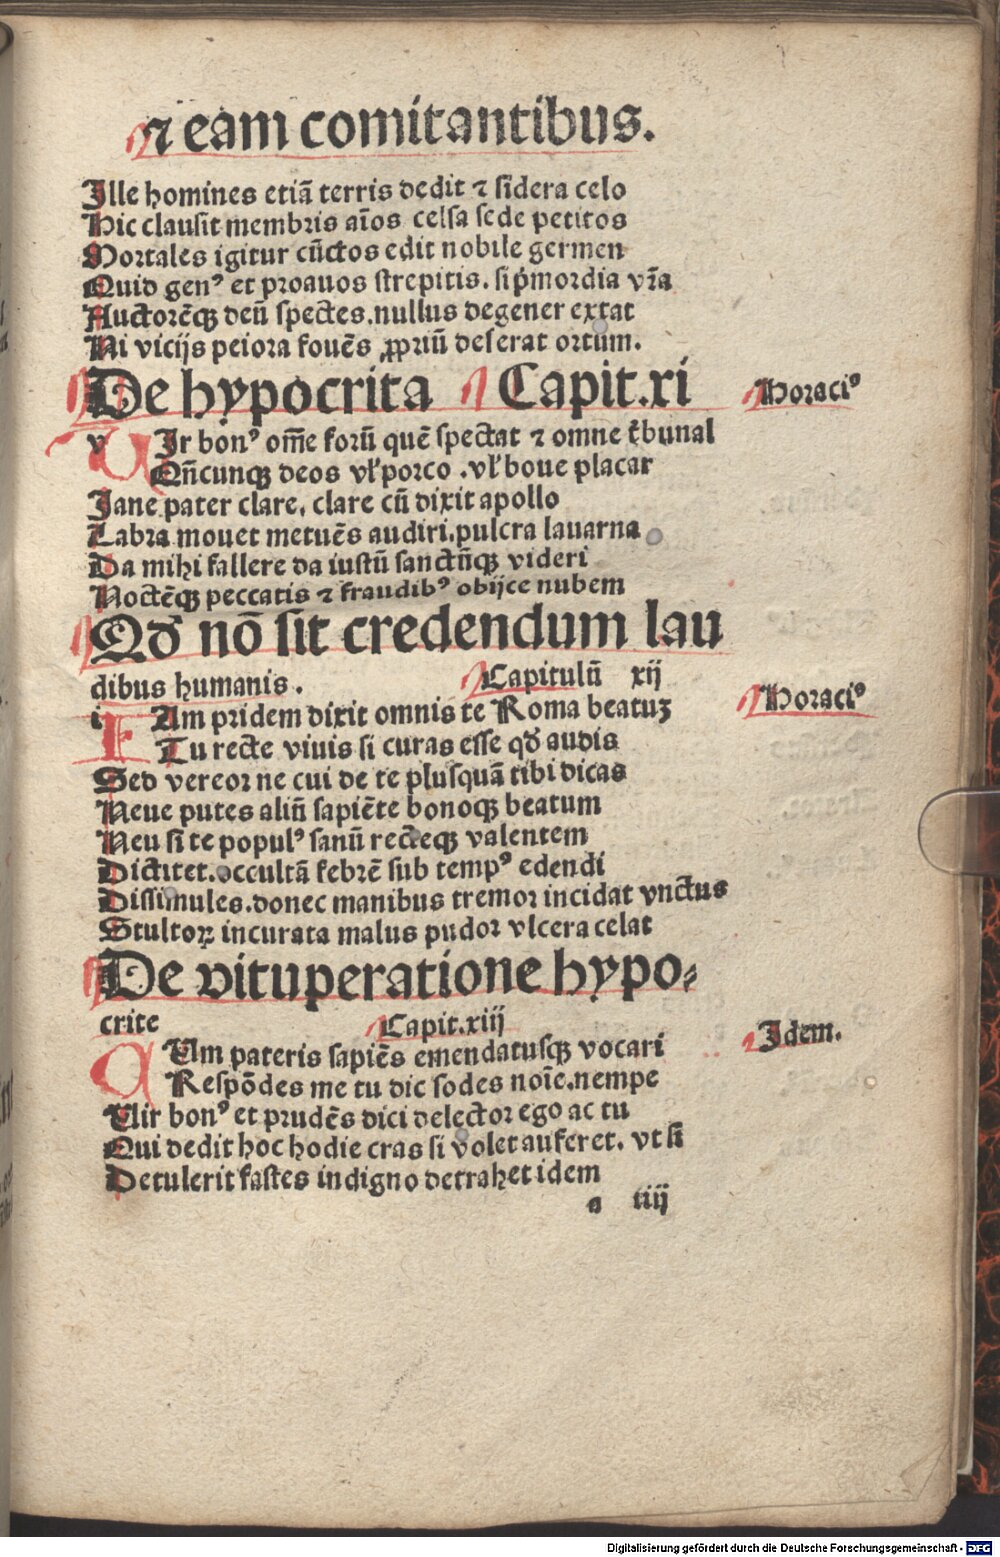 ⁊ eam comitantibus.
Ille homines etiā terris dedit ⁊ sidera celo
Hic clausit membris aīos celsa sede petitos
Mortales igitur cūctos edit nobile germen
Quid genꝰ et proauos strepitis. si pͥmordia vr̄a
Auctorēqꝫ deū spectes. nullus degener extat
Ni vicijs peiora fouēs ꝓpriū deserat ortum.
De hypocrita Capit.xi
Horaciꝰ
v VIr bonꝰ om̄e forū quē spectat ⁊ omne tͥbunal
Qn̄cunqꝫ deos vl̓ porco .vl̓ boue placar
Jane pater clare, clare cū dixit apollo
Labra mouet metuēs audiri. pulcra lauarna
Da mihi fallere da iustū sanctūqꝫ videri
Noctēqꝫ peccatis ⁊ fraudibꝰ obijce nubem
Qd̓ nō sit credendum lau
dibus humanis. Capitulū xij
Horaciꝰ
i IAm pridem dixit omnis te Roma beatuꝫ
Tu recte viuis si curas esse qd̓ audis
Sed vereor ne cui de te plusquā tibi dicas
Neue putes aliū sapiēte bonoqꝫ beatum
Neu si te populꝰ sanū recteqꝫ valentem
Dictitet. occultā febrē sub tempꝰ edendi
Dissimules. donec manibus tremor incidat vnctus
Stultoꝝ incurata malus pudor vlcera celat
De vituperatione hypo⸗
crite Capit.xiij
Idem.
QUm pateris sapiēs emendatusqꝫ vocari
Respōdes me tu dic sodes noīe. nempe
Vir bonꝰ et prudēs dici delector ego ac tu
Qui dedit hoc hodie cras si volet auferet. vt si
Detulerit fastes indigno detrahet idem
a iiij
Digitalisierung gefördert durch die Deutsche Forschungsgemeinschaft - DFG